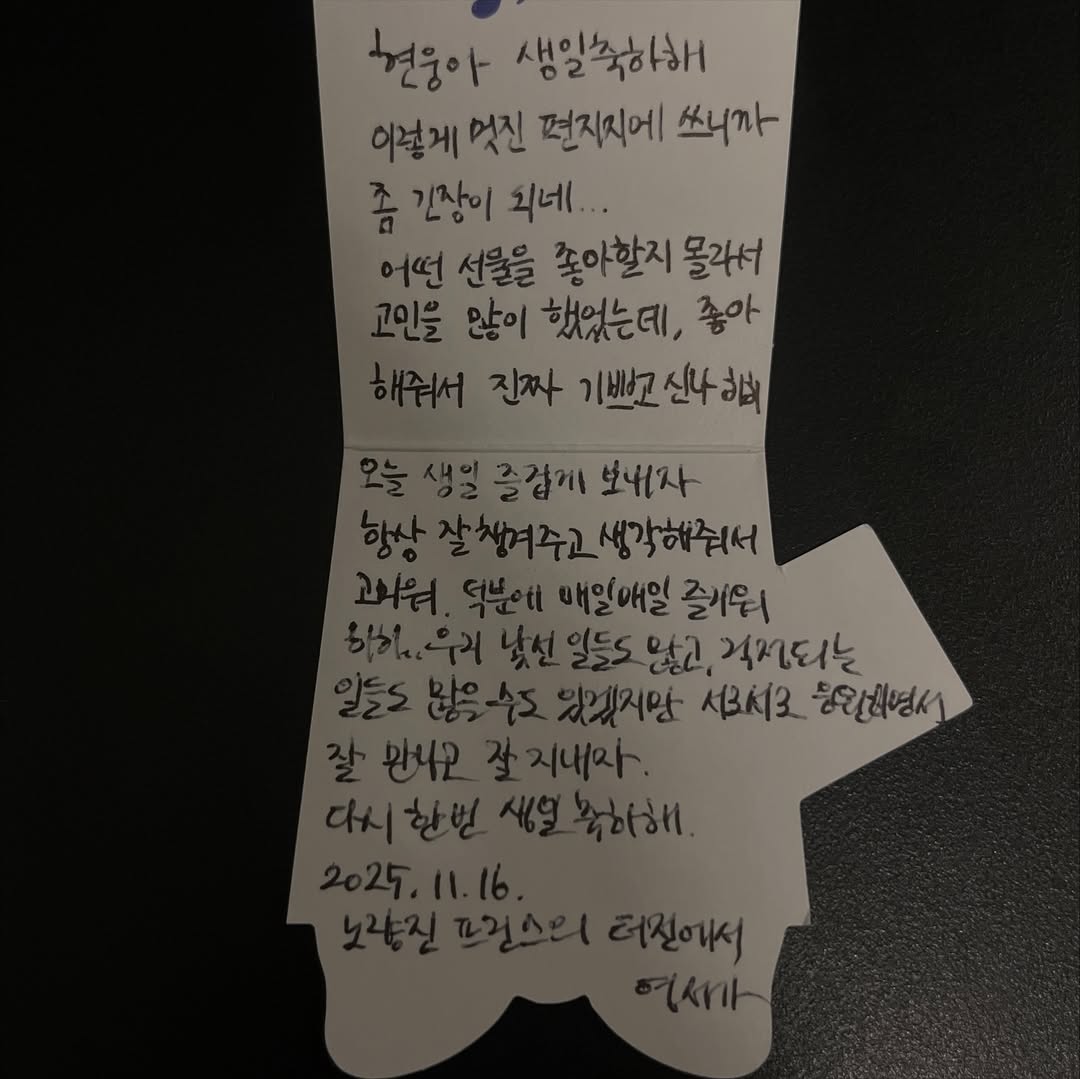 현웅아 생일축하해
이렇게 멋진 편지지에 쓰니까
좀 긴장이 되네...
어떤 선물을 좋아할지 몰라서
고민을 많이 했었는데, 좋아
해줘서 진짜 기쁘고 신나 히히
오늘 생일 즐겁게 보내자
항상 잘 챙겨주고 생각해줘서
고마워. 덕분에 매일매일 즐거워
히히.. 우리 낯선 일들도 많고, 걱정되는
일들도 많을 수도 있겠지만 서로서로 응원하면서
잘 만나고 잘 지내자.
다시 한번 생일 축하해.
2025. 11. 16.
노량진 프린스의 터전에서